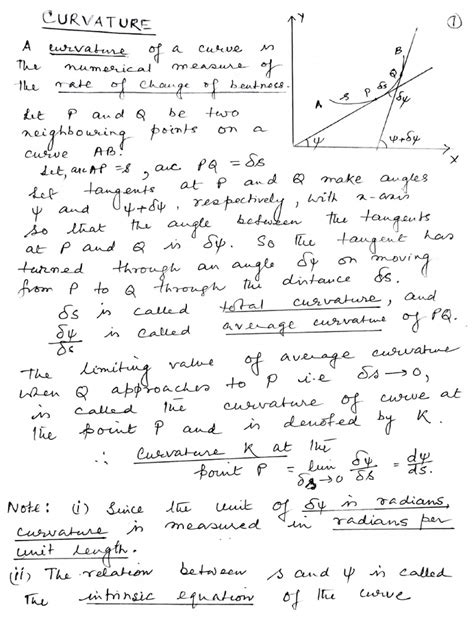 CURVATURE
①
A curvature of a curve is
the numerical measure of
the rate of change of bentness.
Let P and Q be two
neighbouring points on a
curve AB.
Let, arc AP = s, arc PQ = δs
Y
B
Q
A s P δs
δψ
ψ
ψ+δψ
X
Let tangents at P and Q make angles
ψ and ψ+δψ, respectively, with x-axis
so that the angle between the tangents
at P and Q is δψ. So the tangent has
turned through an angle δψ on moving
from P to Q through the distance δs.
δs is called total curvature, and
δψ/δs is called average curvature of PQ.
The limiting value of average curvature
when Q approaches to P i.e δs → 0,
is called the curvature of curve at
the point P and is denoted by K.
∴ curvature K at the
point P = lim δs→0 δψ/δs = dψ/ds.
Note: (i) Since the unit of δψ is radians,
curvature is measured in radians per
unit length.
(ii) The relation between s and ψ is called
the intrinsic equation of the curve